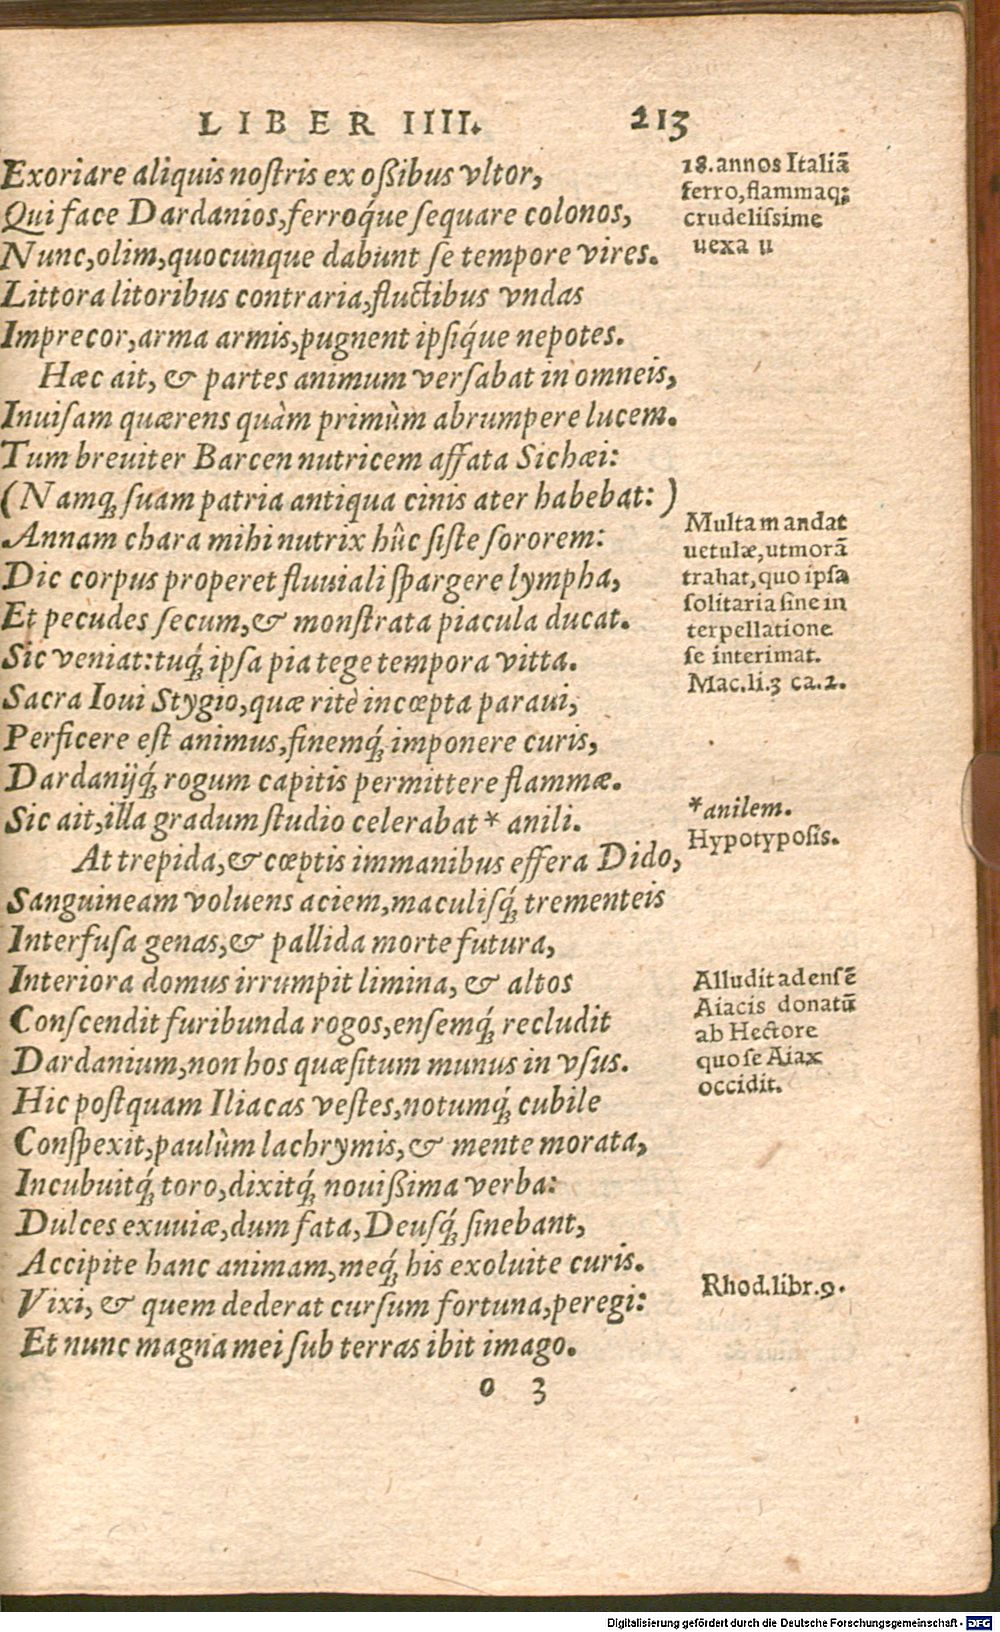 LIBER IIII. 213
Exoriare aliquis noſtris ex oßibus vltor,
Qui face Dardanios, ferroq́ue ſequare colonos,
Nunc, olim, quocunque dabunt ſe tempore vires.
Littora litoribus contraria, fluctibus vndas
Imprecor, arma armis, pugnent ipſiq́ue nepotes.
Hæc ait, & partes animum verſabat in omneis,
Inuiſam quærens quàm primùm abrumpere lucem.
Tum breuiter Barcen nutricem affata Sichæi:
(Namq; ſuam patria antiqua cinis ater habebat:)
Annam chara mihi nutrix hûc ſiſte ſororem:
Dic corpus properet fluuiali ſpargere lympha,
Et pecudes ſecum, & monſtrata piacula ducat.
Sic veniat: tuq́; ipſa pia tege tempora vitta.
Sacra Ioui Stygio, quæ ritè incœpta paraui,
Perficere eſt animus, finemq́; imponere curis,
Dardanijq́; rogum capitis permittere flammæ.
Sic ait, illa gradum ſtudio celerabat * anili.
At trepida, & cœptis immanibus effera Dido,
Sanguineam voluens aciem, maculiſq́; trementeis
Interfuſa genas, & pallida morte futura,
Interiora domus irrumpit limina, & altos
Conſcendit furibunda rogos, enſemq́; recludit
Dardanium, non hos quæſitum munus in vſus.
Hic poſtquam Iliacas veſtes, notumq́; cubile
Conſpexit, paulùm lachrymis, & mente morata,
Incubuitq́; toro, dixitq́; nouißima verba:
Dulces exuuiæ, dum fata, Deuſq́; ſinebant,
Accipite hanc animam, meq́; his exoluite curis.
Vixi, & quem dederat curſum fortuna, peregi:
Et nunc magna mei ſub terras ibit imago.
o 3
18. annos Italiã
ferro, flammaq;
crudeliſſime
uexa u
Multa mandat
uetulæ, ut morã
trahat, quo ipſa
ſolitaria ſine in
terpellatione
ſe interimat.
Mac. li. 3 ca. 2.
*anilem.
Hypotypoſis.
Alludit ad enſẽ
Aiacis donatũ
ab Hectore
quo ſe Aiax
occidit.
Rhod. libr. 9.
Digitalisierung gefördert durch die Deutsche Forschungsgemeinschaft - DFG